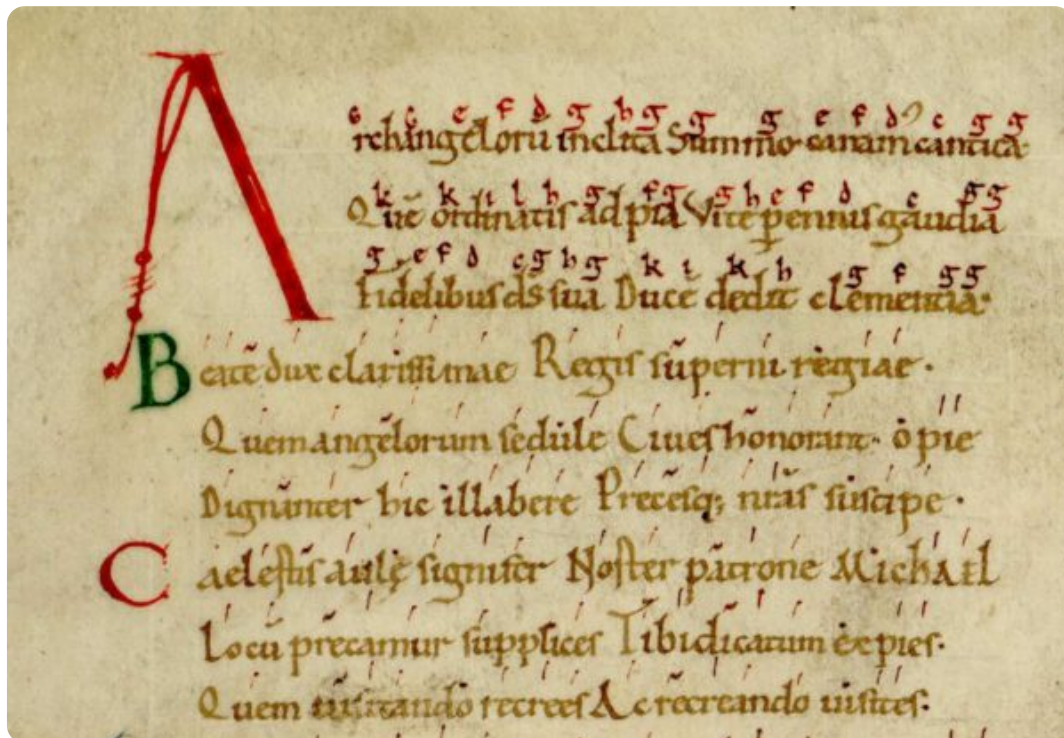 e e e f d g h g g g e f d e g g
Archangelorū inclita Summo canam cantica·
k k i l h g f g g h e f d e g g
Quē ordinatis ad pia Vitę pennis gaudia
g e f d e g h g k i k h g f g g
Fidelibus ds sua Ducē dedit clementia·
Beate dux clarissimae Regis superni regiae·
Quem angelorum sedule Ciues honorant· o pie
Dignanter hic illabere Precesq; nrās suscipe·
Caelestis aulę signifer Noster patrone Michael
Locū precamur supplices Tibi dicatum expies·
Quem uisitando recrees Ac recreando uisites·